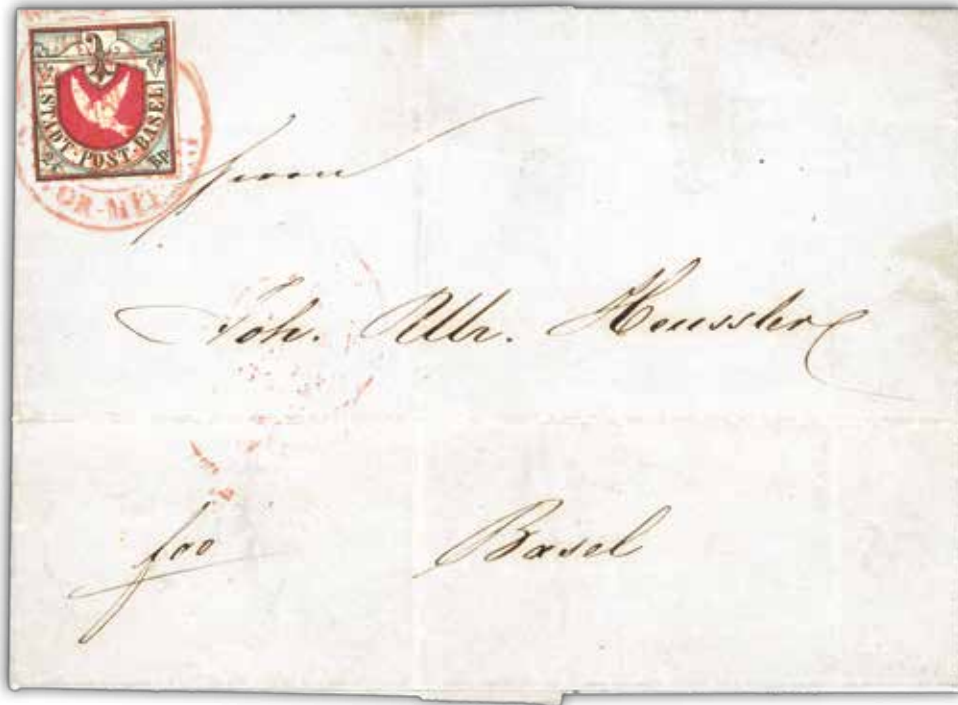 STADT-POST-BASEL
2½ Rp.
Herrn
Joh. Ulr. Heussler
fco
Basel